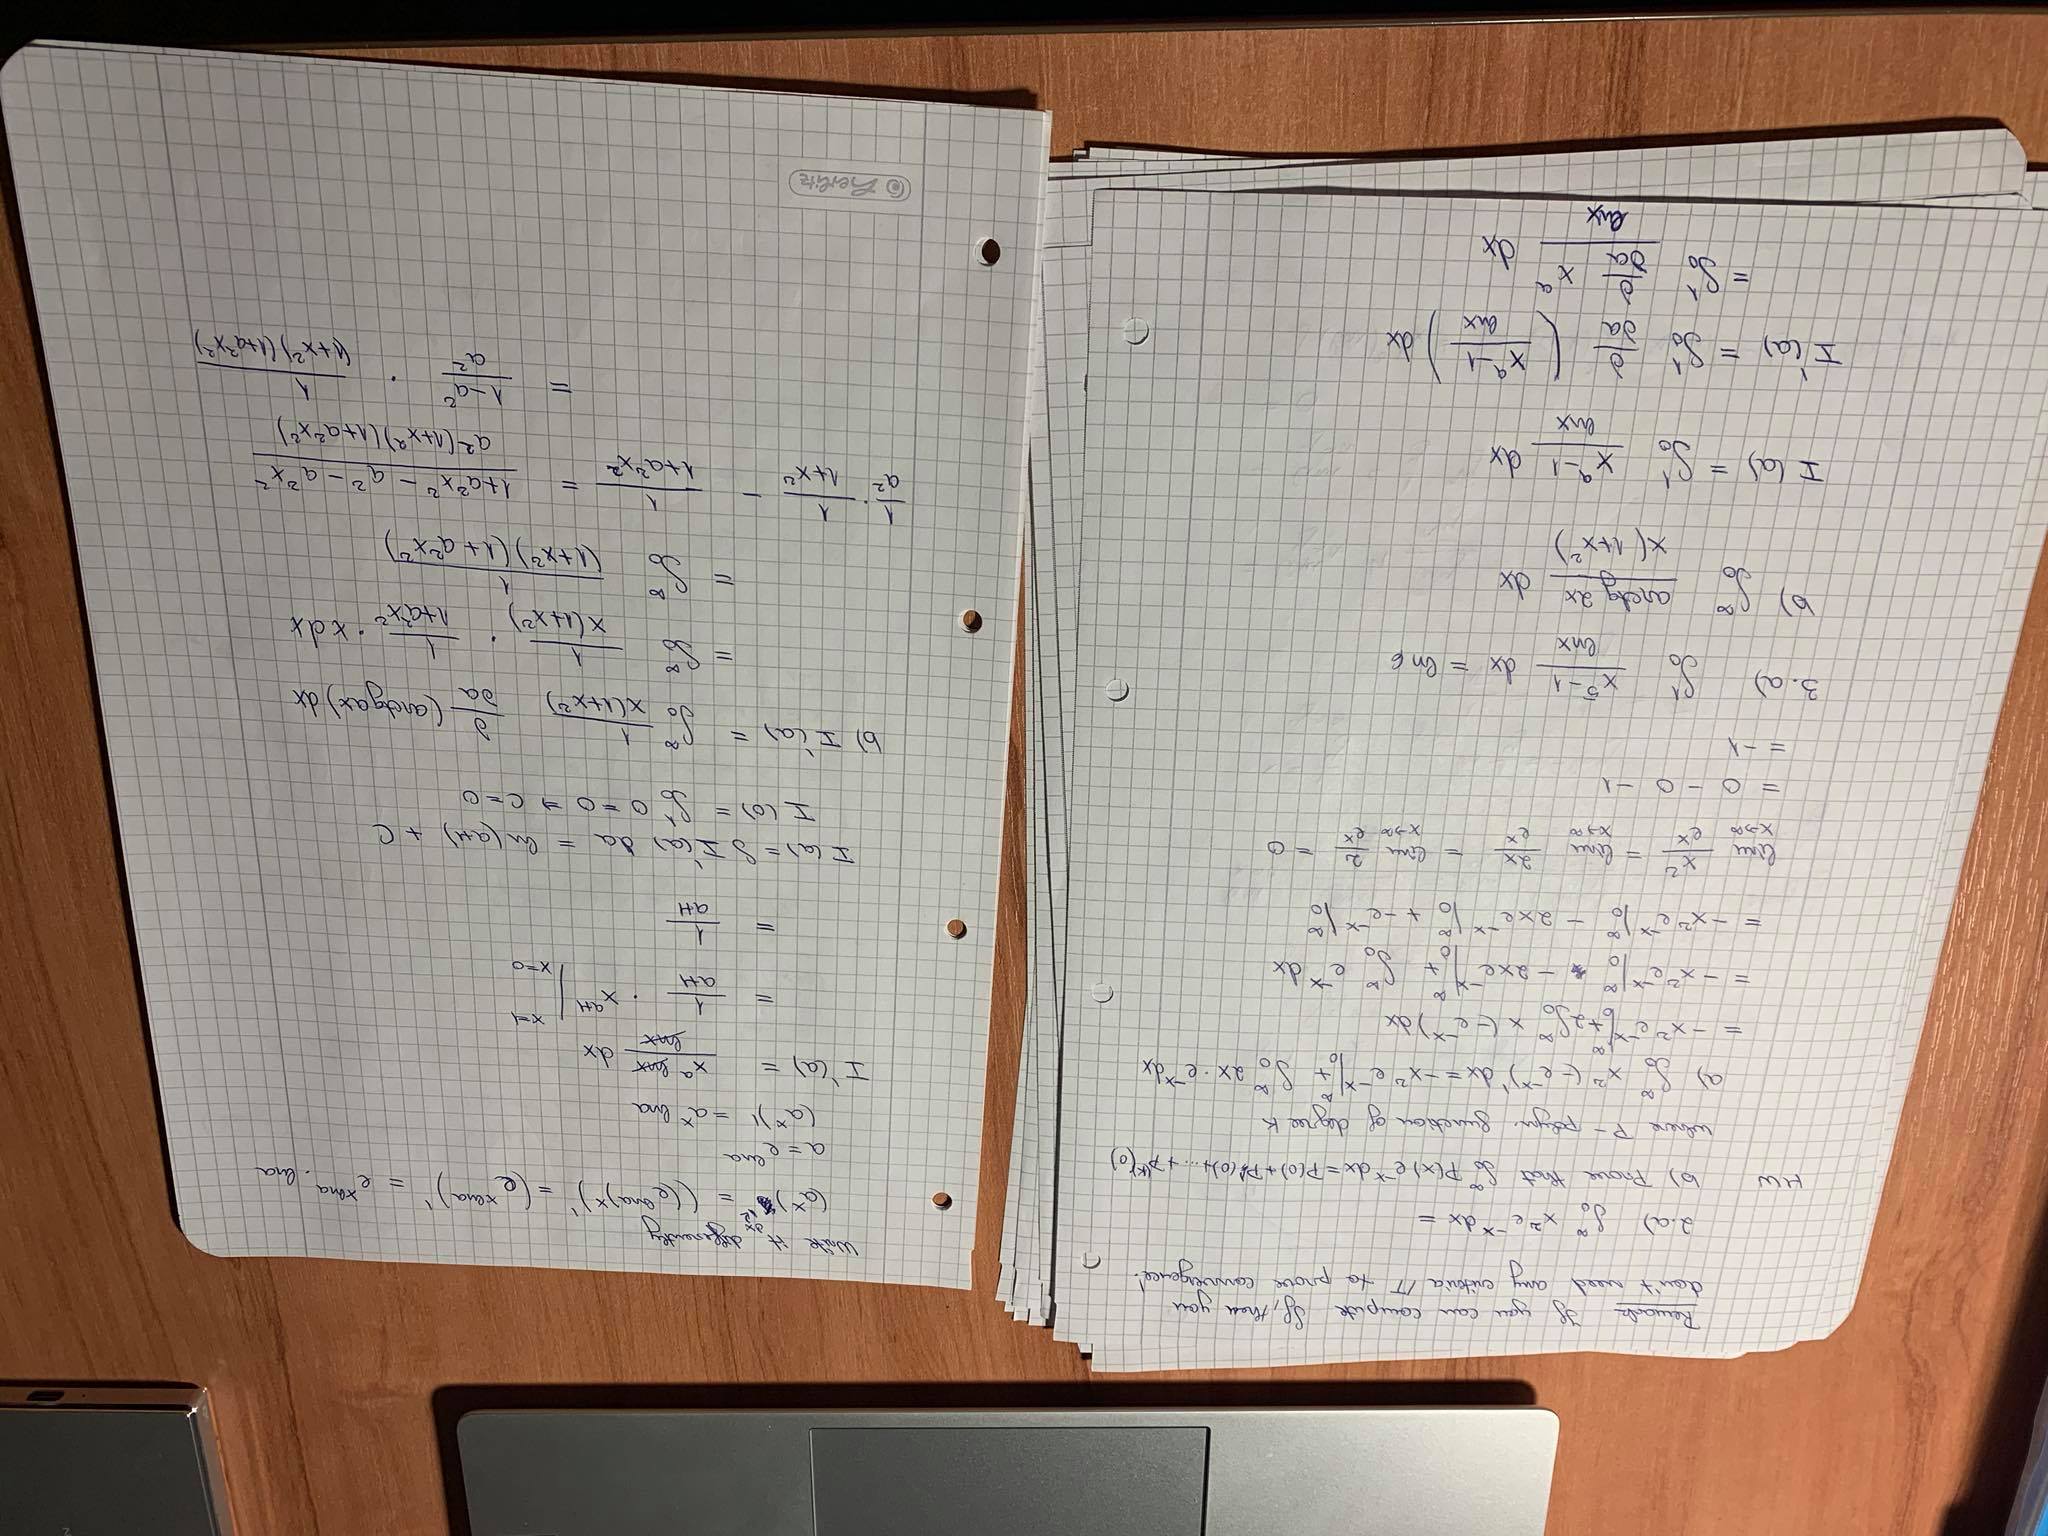 Remark If you can compute ∫f, then you
don't need any criteria IT to prove convergence!
2.a) ∫₀^∞ x² e^(-x) dx =
HW b) Prove that ∫₀^∞ P(x) e^(-x) dx = P(0) + P'(0) + ... + P^(k)(0)
where P - polyn. function of degree k
a) ∫₀^∞ x² (-e^(-x))' dx = -x² e^(-x) |₀^∞ + ∫₀^∞ 2x · e^(-x) dx
= -x² e^(-x) |₀^∞ + 2 ∫₀^∞ x (-e^(-x)) dx
= -x² e^(-x) |₀^∞ - 2x e^(-x) |₀^∞ + ∫₀^∞ e^(-x) dx
= -x² e^(-x) |₀^∞ - 2x e^(-x) |₀^∞ + -e^(-x) |₀^∞
lim_(x→∞) x²/e^x = lim_(x→∞) 2x/e^x = lim_(x→∞) 2/e^x = 0
= 0 - 0 - 1
= -1
3. a) ∫₀^1 (x⁵-1)/(lnx) dx = ln 6
b) ∫₀^∞ (arctg 2x)/(x(1+x²)) dx
I(a) = ∫₀^1 (x^a-1)/(lnx) dx
I'(a) = ∫₀^1 ∂/∂a ((x^a-1)/(lnx)) dx
= ∫₀^1 (∂/∂a x^a)/(lnx) dx
Write it differently
(a^x)' = ((e^(lna))^x)' = (e^(xlna))' = e^(xlna) · lna
a = e^(lna)
(a^x)' = a^x lna
I'(a) = (x^a lnx)/(lnx) dx
= 1/(a+1) · x^(a+1) |_(x=0)^(x=1)
= 1/(a+1)
I(a) = ∫ I'(a) da = ln(a+1) + C
I(0) = ∫₀^1 0 = 0 ⇒ C = 0
b) I'(a) = ∫₀^∞ 1/(x(1+x²)) ∂/∂a (arctg ax) dx
= ∫₀^∞ 1/(x(1+x²)) · 1/(1+a²x²) · x dx
= ∫₀^∞ 1/((1+x²)(1+a²x²))
1/a² · 1/(1+x²) - 1/(1+a²x²) = (1+a²x² - a² - a²x²)/(a²(1+x²)(1+a²x²))
= (1-a²)/a² · 1/((1+x²)(1+a²x²))
herlitz